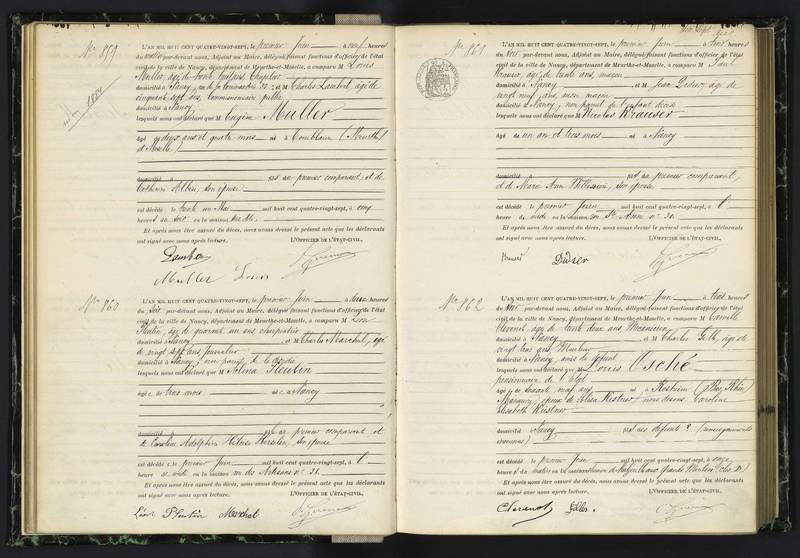 No 859
L'AN MIL HUIT CENT QUATRE-VINGT-SEPT, le premier Juin à neuf heures
du matin par-devant nous, Adjoint au Maire, délégué, faisant fonctions d'officier de l'état
civil de la ville de Nancy, département de Meurthe-et-Moselle, a comparu M Louis
Muller, âgé de trente
domicilié à Nancy, et M Charles Lambert, âgé de
cinquante sept ans, commissionnaire public
domicilié à Nancy
lesquels nous ont déclaré que M Eugène Muller
âgé de deux ans et quatre mois né à Comblain (Meurthe
et Moselle)
domicilié à fils au premier comparant, et de
Catherine Albin, son épouse
est décédé le trente un Mai mil huit cent quatre-vingt-sept, à cinq
heures du soir en sa maison
Et après nous être assuré du décès, nous avons dressé le présent acte que les déclarants
ont signé avec nous après lecture. L'OFFICIER DE L'ÉTAT-CIVIL,
Lambert
Muller Louis
No 860
L'AN MIL HUIT CENT QUATRE-VINGT-SEPT, le premier Juin à deux heures
du soir par-devant nous, Adjoint au Maire, délégué, faisant fonctions d'officier de l'état
civil de la ville de Nancy, département de Meurthe-et-Moselle, a comparu M Léon
Pleutin, âgé de quarante un ans, charpentier
domicilié à Nancy et M Charles Marchal, âgé
de vingt sept ans, journalier
domicilié à Nancy, non parent de la décédée
lesquels nous ont déclaré que M Pleutin
âgée de trois mois née à Nancy
domicilié à fille au premier comparant, et
de Caroline Adolphine son épouse
est décédée le premier Juin mil huit cent quatre-vingt-sept, à l'
heure de midi en sa maison rue des Artisans no 31.
Et après nous être assuré du décès, nous avons dressé le présent acte que les déclarants
ont signé avec nous après lecture. L'OFFICIER DE L'ÉTAT-CIVIL,
Léon Pleutin Marchal
No 861
L'AN MIL HUIT CENT QUATRE-VINGT-SEPT, le premier Juin à trois heures
du soir par-devant nous, Adjoint au Maire, délégué, faisant fonctions d'officier de l'état
civil de la ville de Nancy, département de Meurthe-et-Moselle, a comparu M Paul
Krauser, âgé de trente ans, maçon
domicilié à Nancy et M Jean Didier, âgé de
vingt neuf ans, aussi maçon
domicilié à Nancy, non parent de l'enfant décédé
lesquels nous ont déclaré que M Nicolas Krauser
âgé de un an et trois mois né à Nancy
domicilié à fils au premier comparant,
et de Marie Anne son épouse
est décédé le premier Juin mil huit cent quatre-vingt-sept, à l'
heure de midi en sa maison, rue Ste Anne no 31.
Et après nous être assuré du décès, nous avons dressé le présent acte que les déclarants
ont signé avec nous après lecture. L'OFFICIER DE L'ÉTAT-CIVIL,
Didier
No 862
L'AN MIL HUIT CENT QUATRE-VINGT-SEPT, le premier Juin à trois heures
du soir par-devant nous, Adjoint au Maire, délégué, faisant fonctions d'officier de l'état
civil de la ville de Nancy, département de Meurthe-et-Moselle, a comparu M Camille
Clevenot, âgé de trente deux ans, Mécanicien
domicilié à Nancy et M Charles âgé de
vingt trois ans
domicilié à Nancy, amis du défunt
lesquels nous ont déclaré que M Louis Osché
pensionnaire de l'État
âgé de soixante neuf ans né à Rosheim (Bas Rhin)
époux de Kistner nous disons Caroline
Elisabeth Kistner
domicilié à Nancy fils des défunts ? (renseignements
inconnus)
est décédé le premier Juin mil huit cent quatre-vingt-sept, à onze
heures du matin en sa maison
Et après nous être assuré du décès, nous avons dressé le présent acte que les déclarants
ont signé avec nous après lecture. L'OFFICIER DE L'ÉTAT-CIVIL,
Clevenot